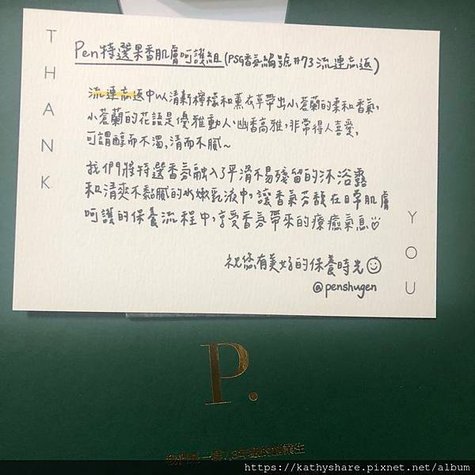 THANK
Pen特選果香肌膚呵護組(PSG香氛編號#73流連忘返)
流連忘返中以清新檸檬和薰衣草帶出小蒼蘭的柔和香氣,
小蒼蘭的花語是優雅動人、幽香高雅,非常得人喜愛,
可謂醇而不濁,清而不膩~
我們將特選香氛融入了平滑不易殘留的沐浴露
和清爽不黏膩的水嫩乳液中,讓香氣芬馥在日常肌膚
呵護的保養流程中,享受香氛帶來的療癒氣息♡
祝您有美好的保養時光☺
@penshugen
YOU
P.
https://kathyshare.pixnet.net/album